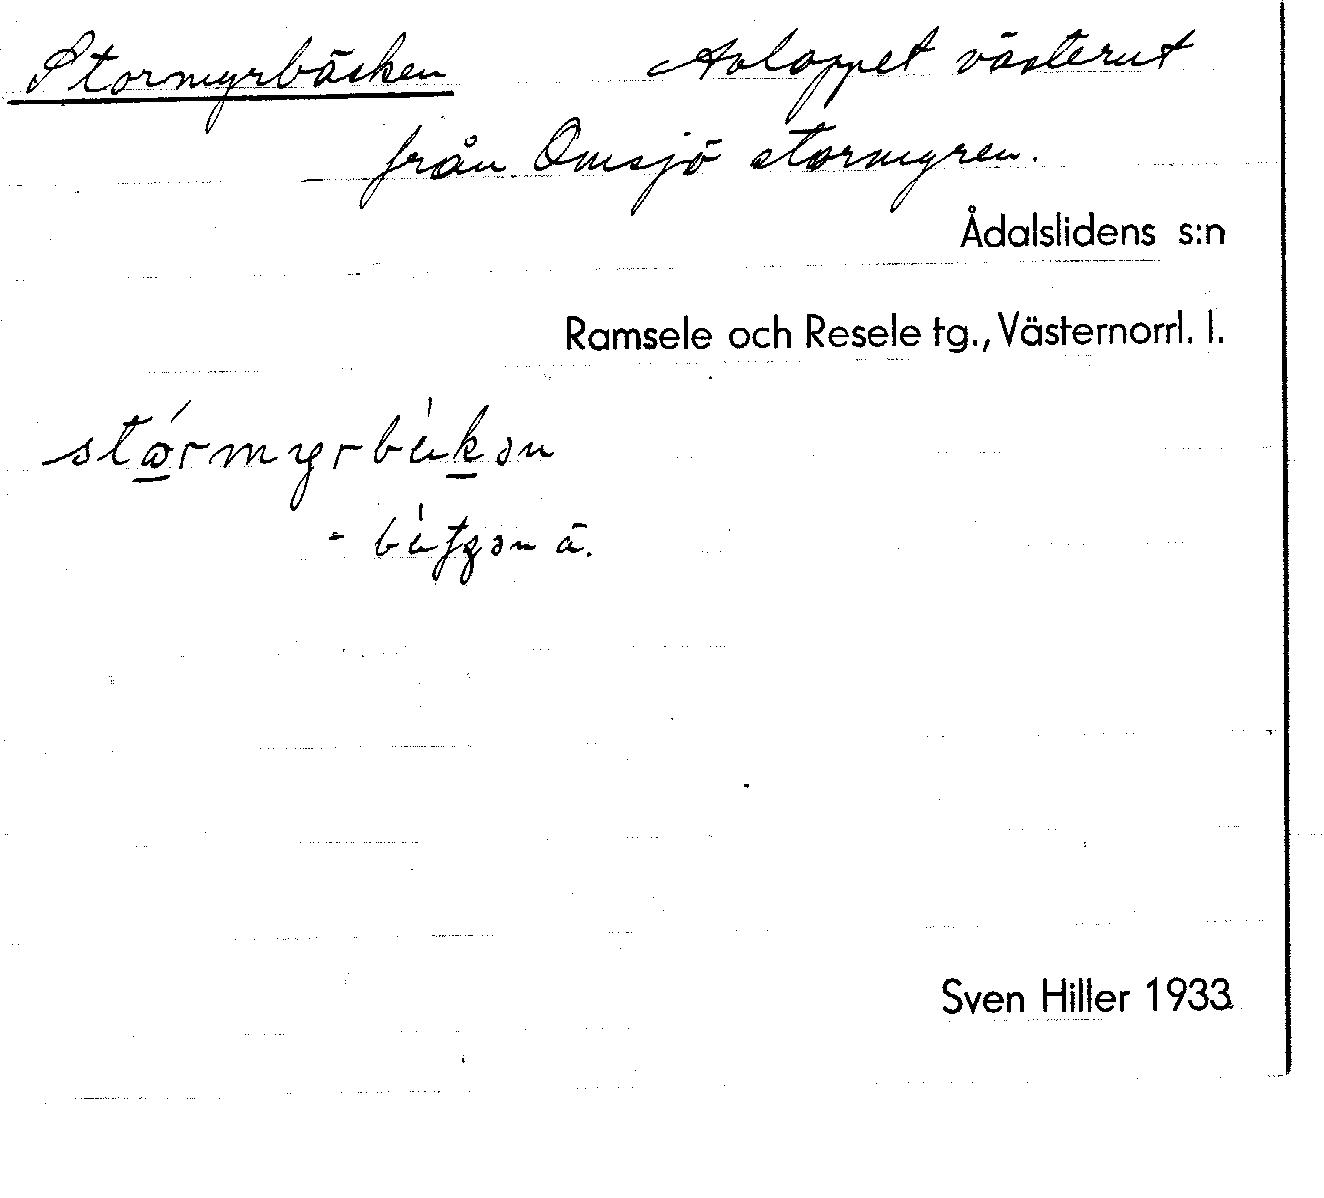 Stormyrbäcken Avloppet västerut
från Omsjö stormyren.
Ådalslidens s:n
Ramsele och Resele tg., Västernorrl. l.
- ä.
Sven Hiller 1933